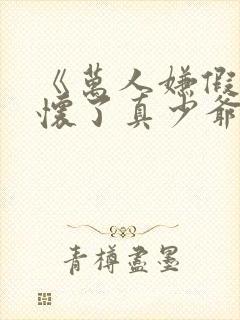 《萬人嫌假
懷了真少爺
青樽盡墨